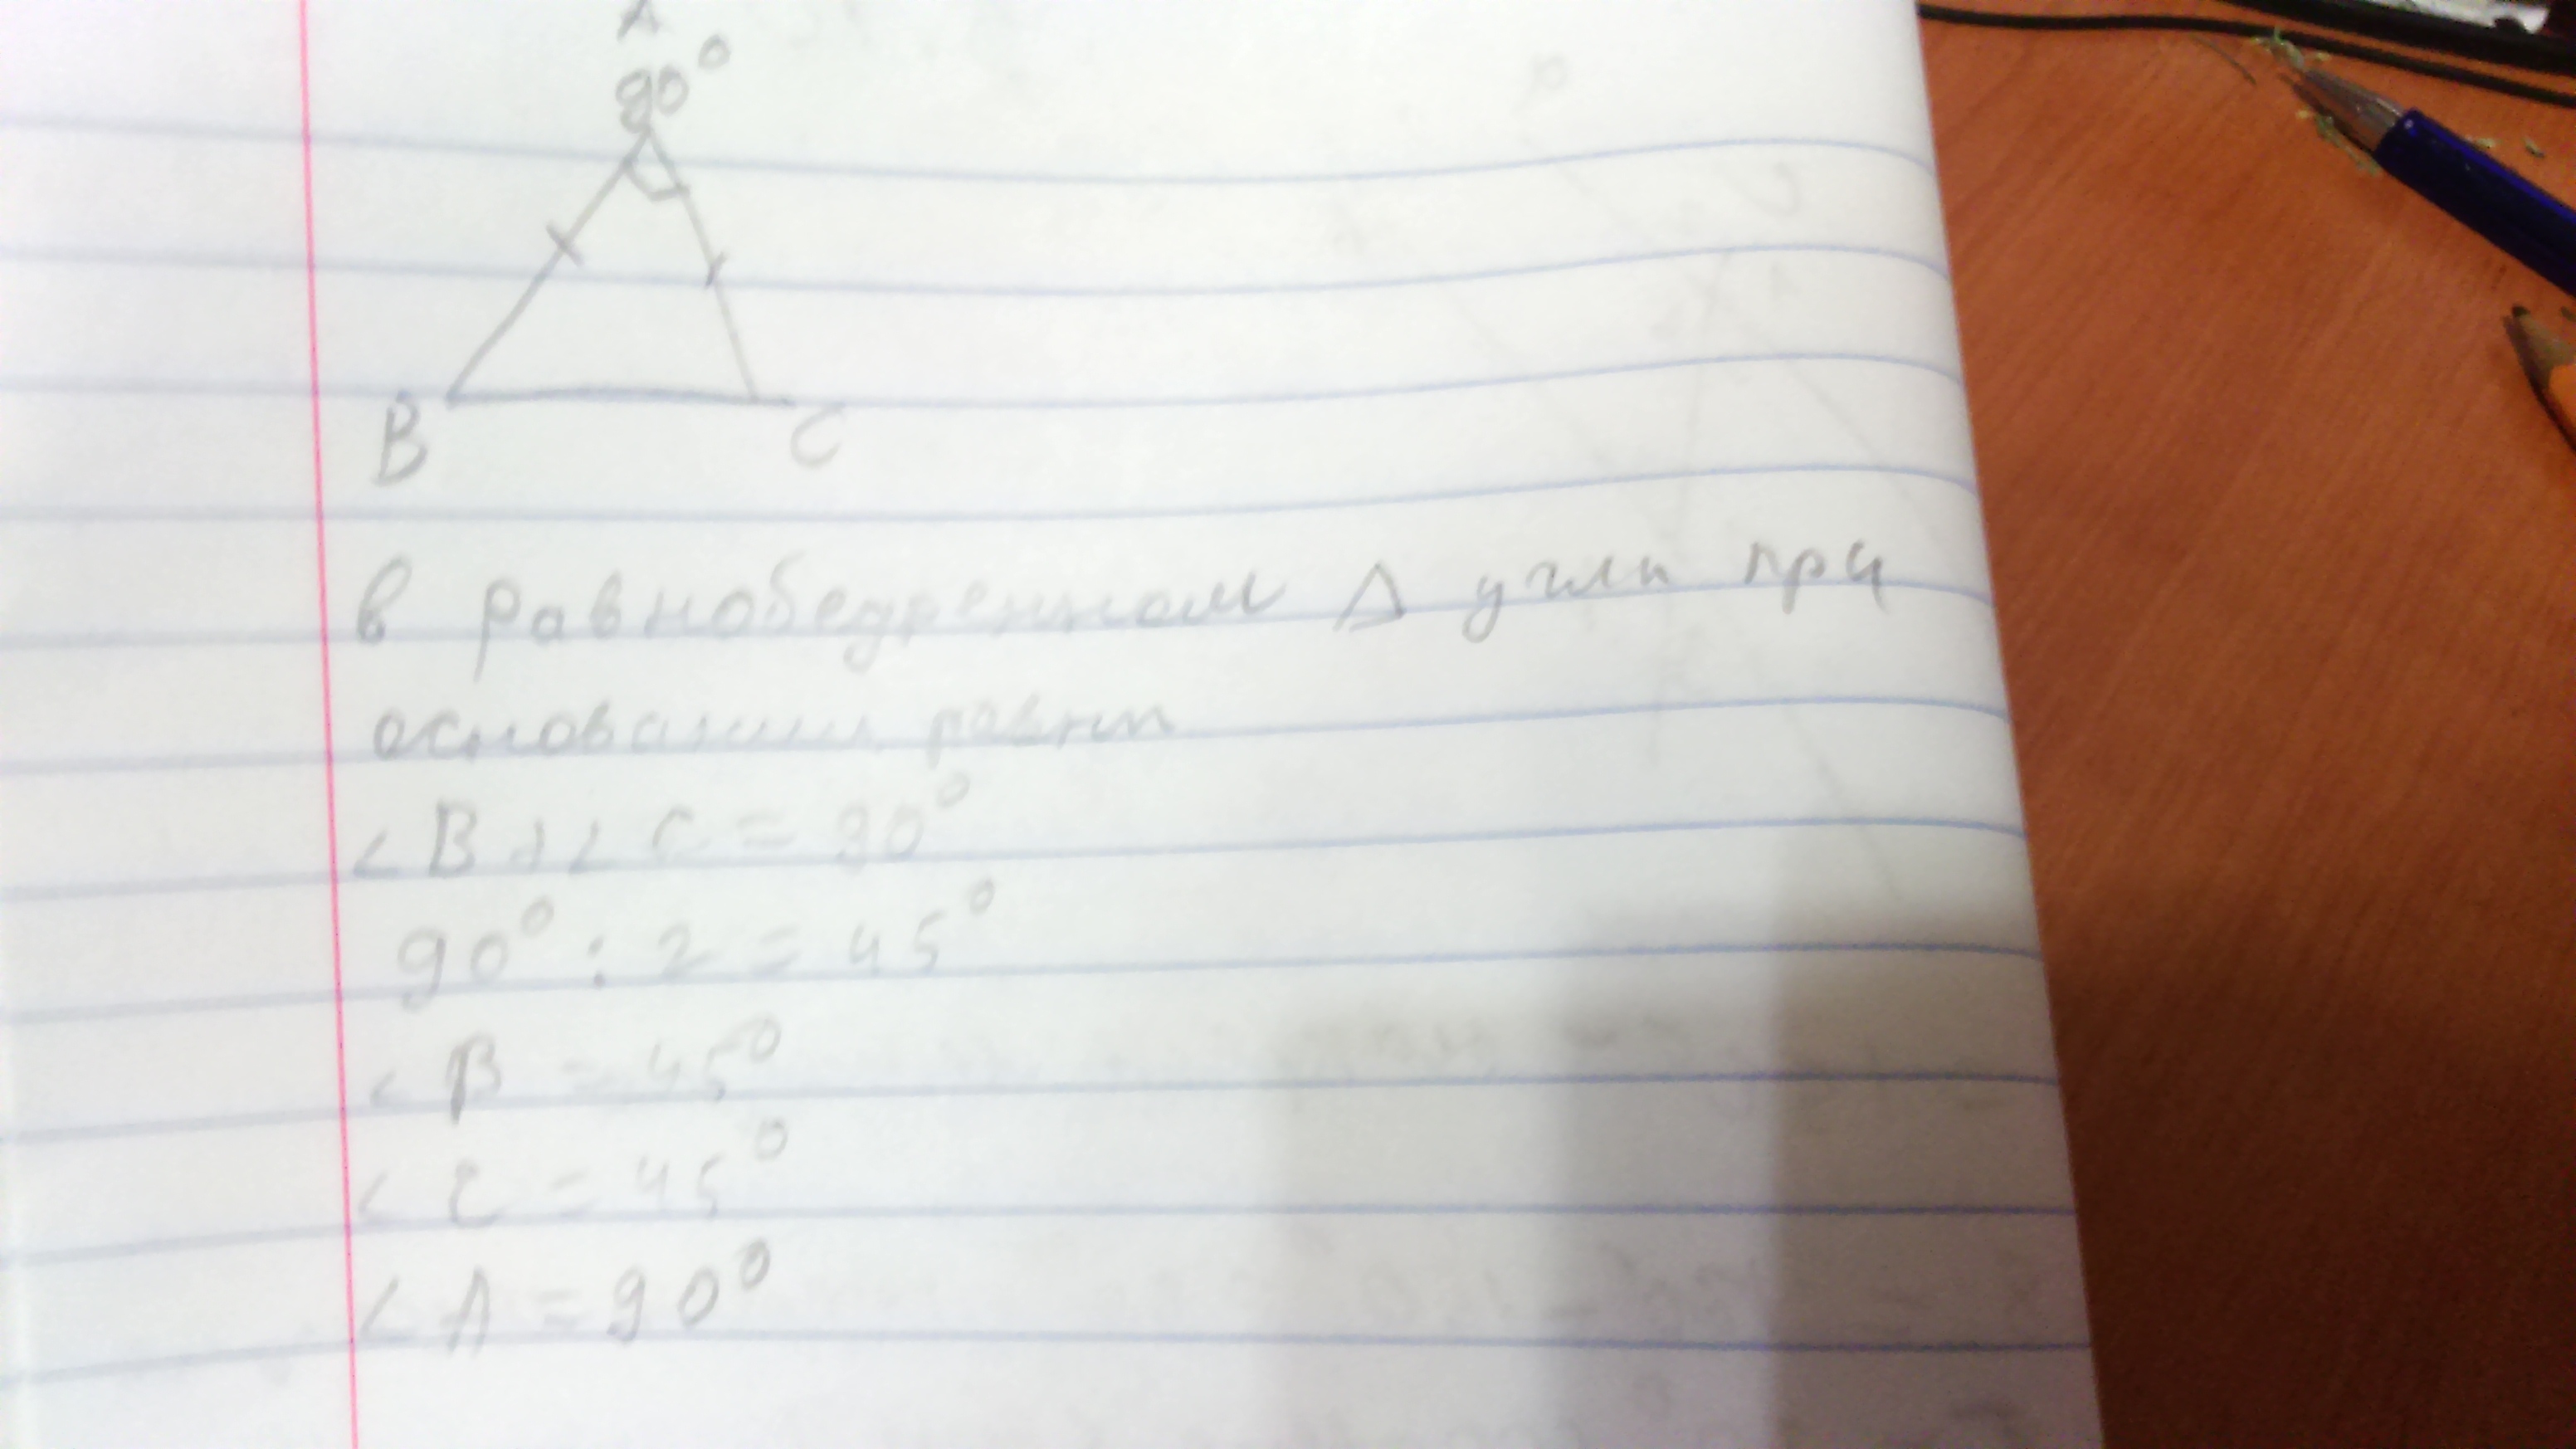 A
90°
B
C
в равнобедренном Δ углы при
основании равны
∠B+∠C=90°
90° : 2 = 45°
∠B = 45°
∠C = 45°
∠A = 90°